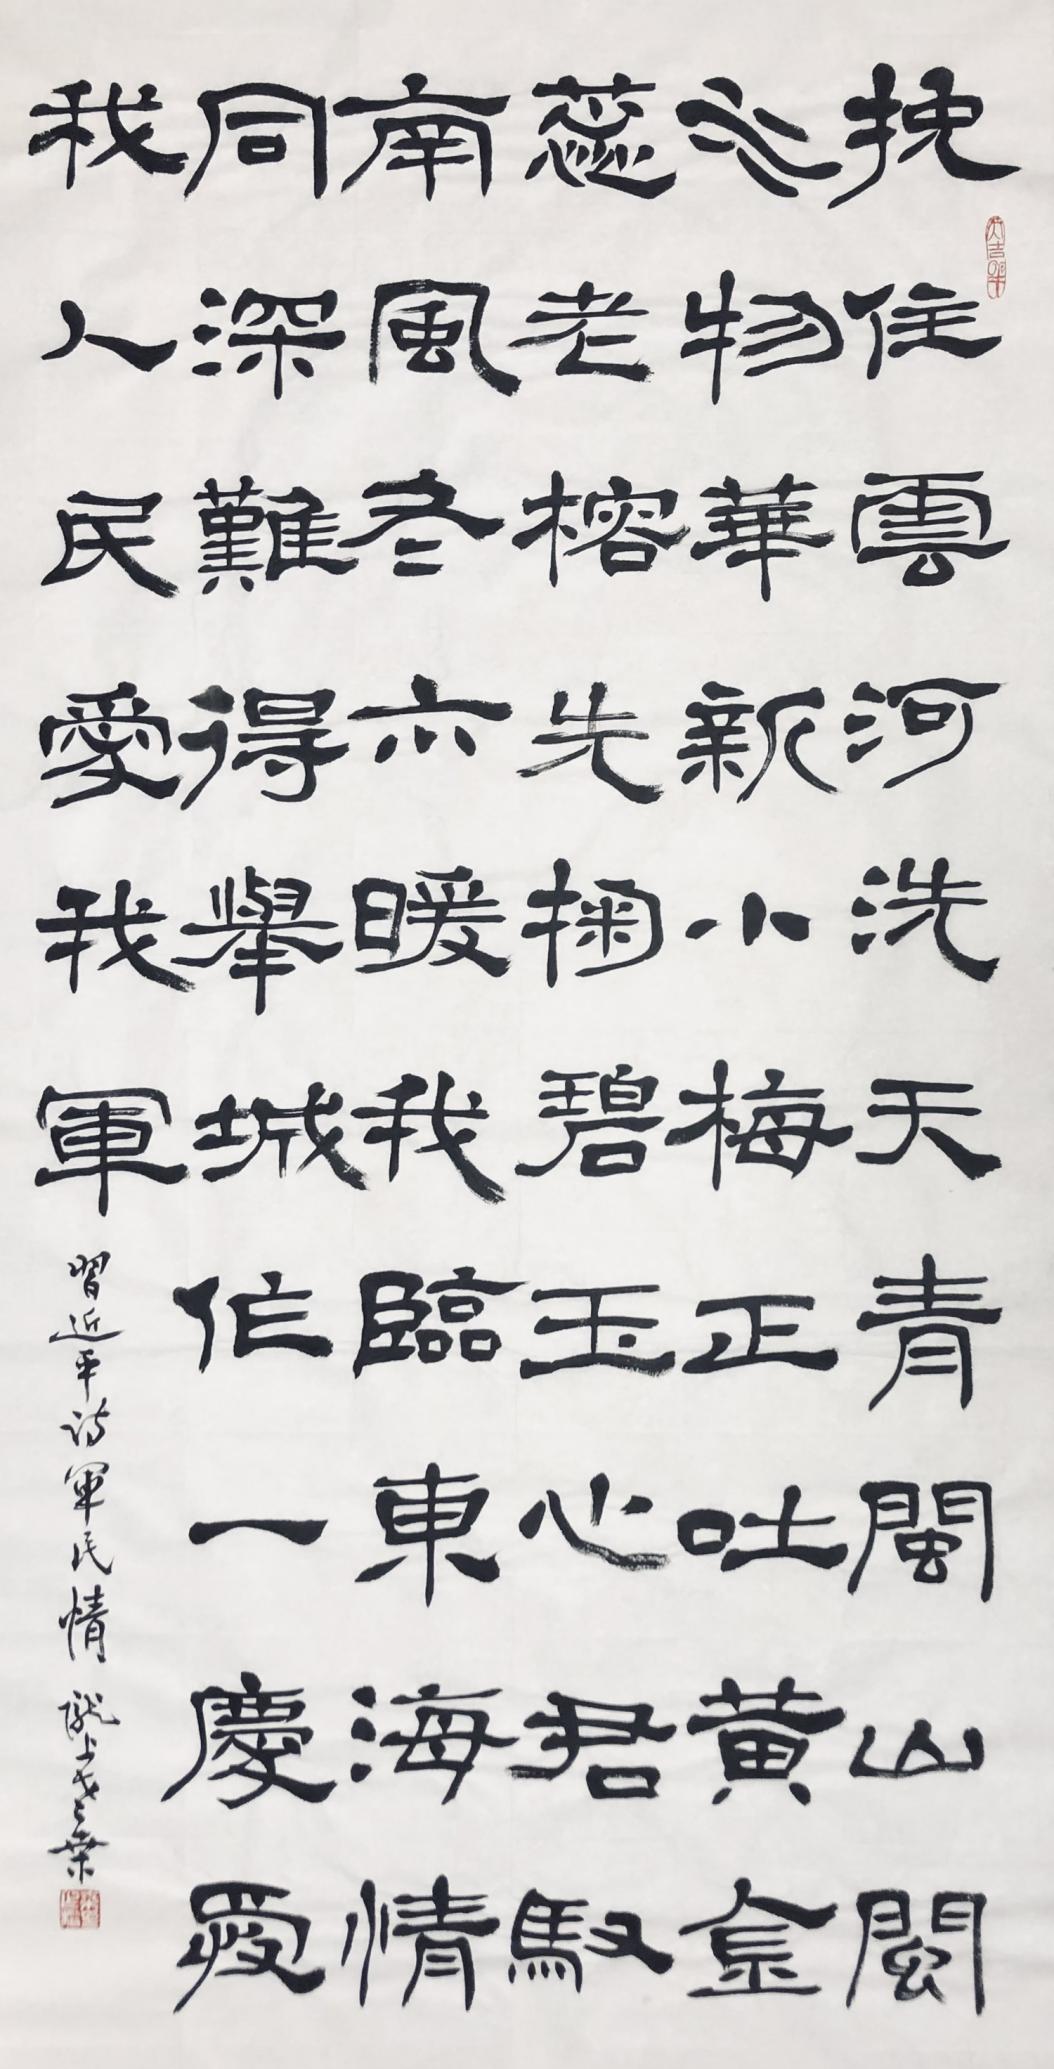 挽住雲河洗天青閩山閩
水物華新小梅正吐黃金
蕊老榕先掬碧玉心君馭
南風冬六暖我臨東海情
同深難得舉城作一慶愛
我人民愛我軍
習近平诗軍民情 隴上